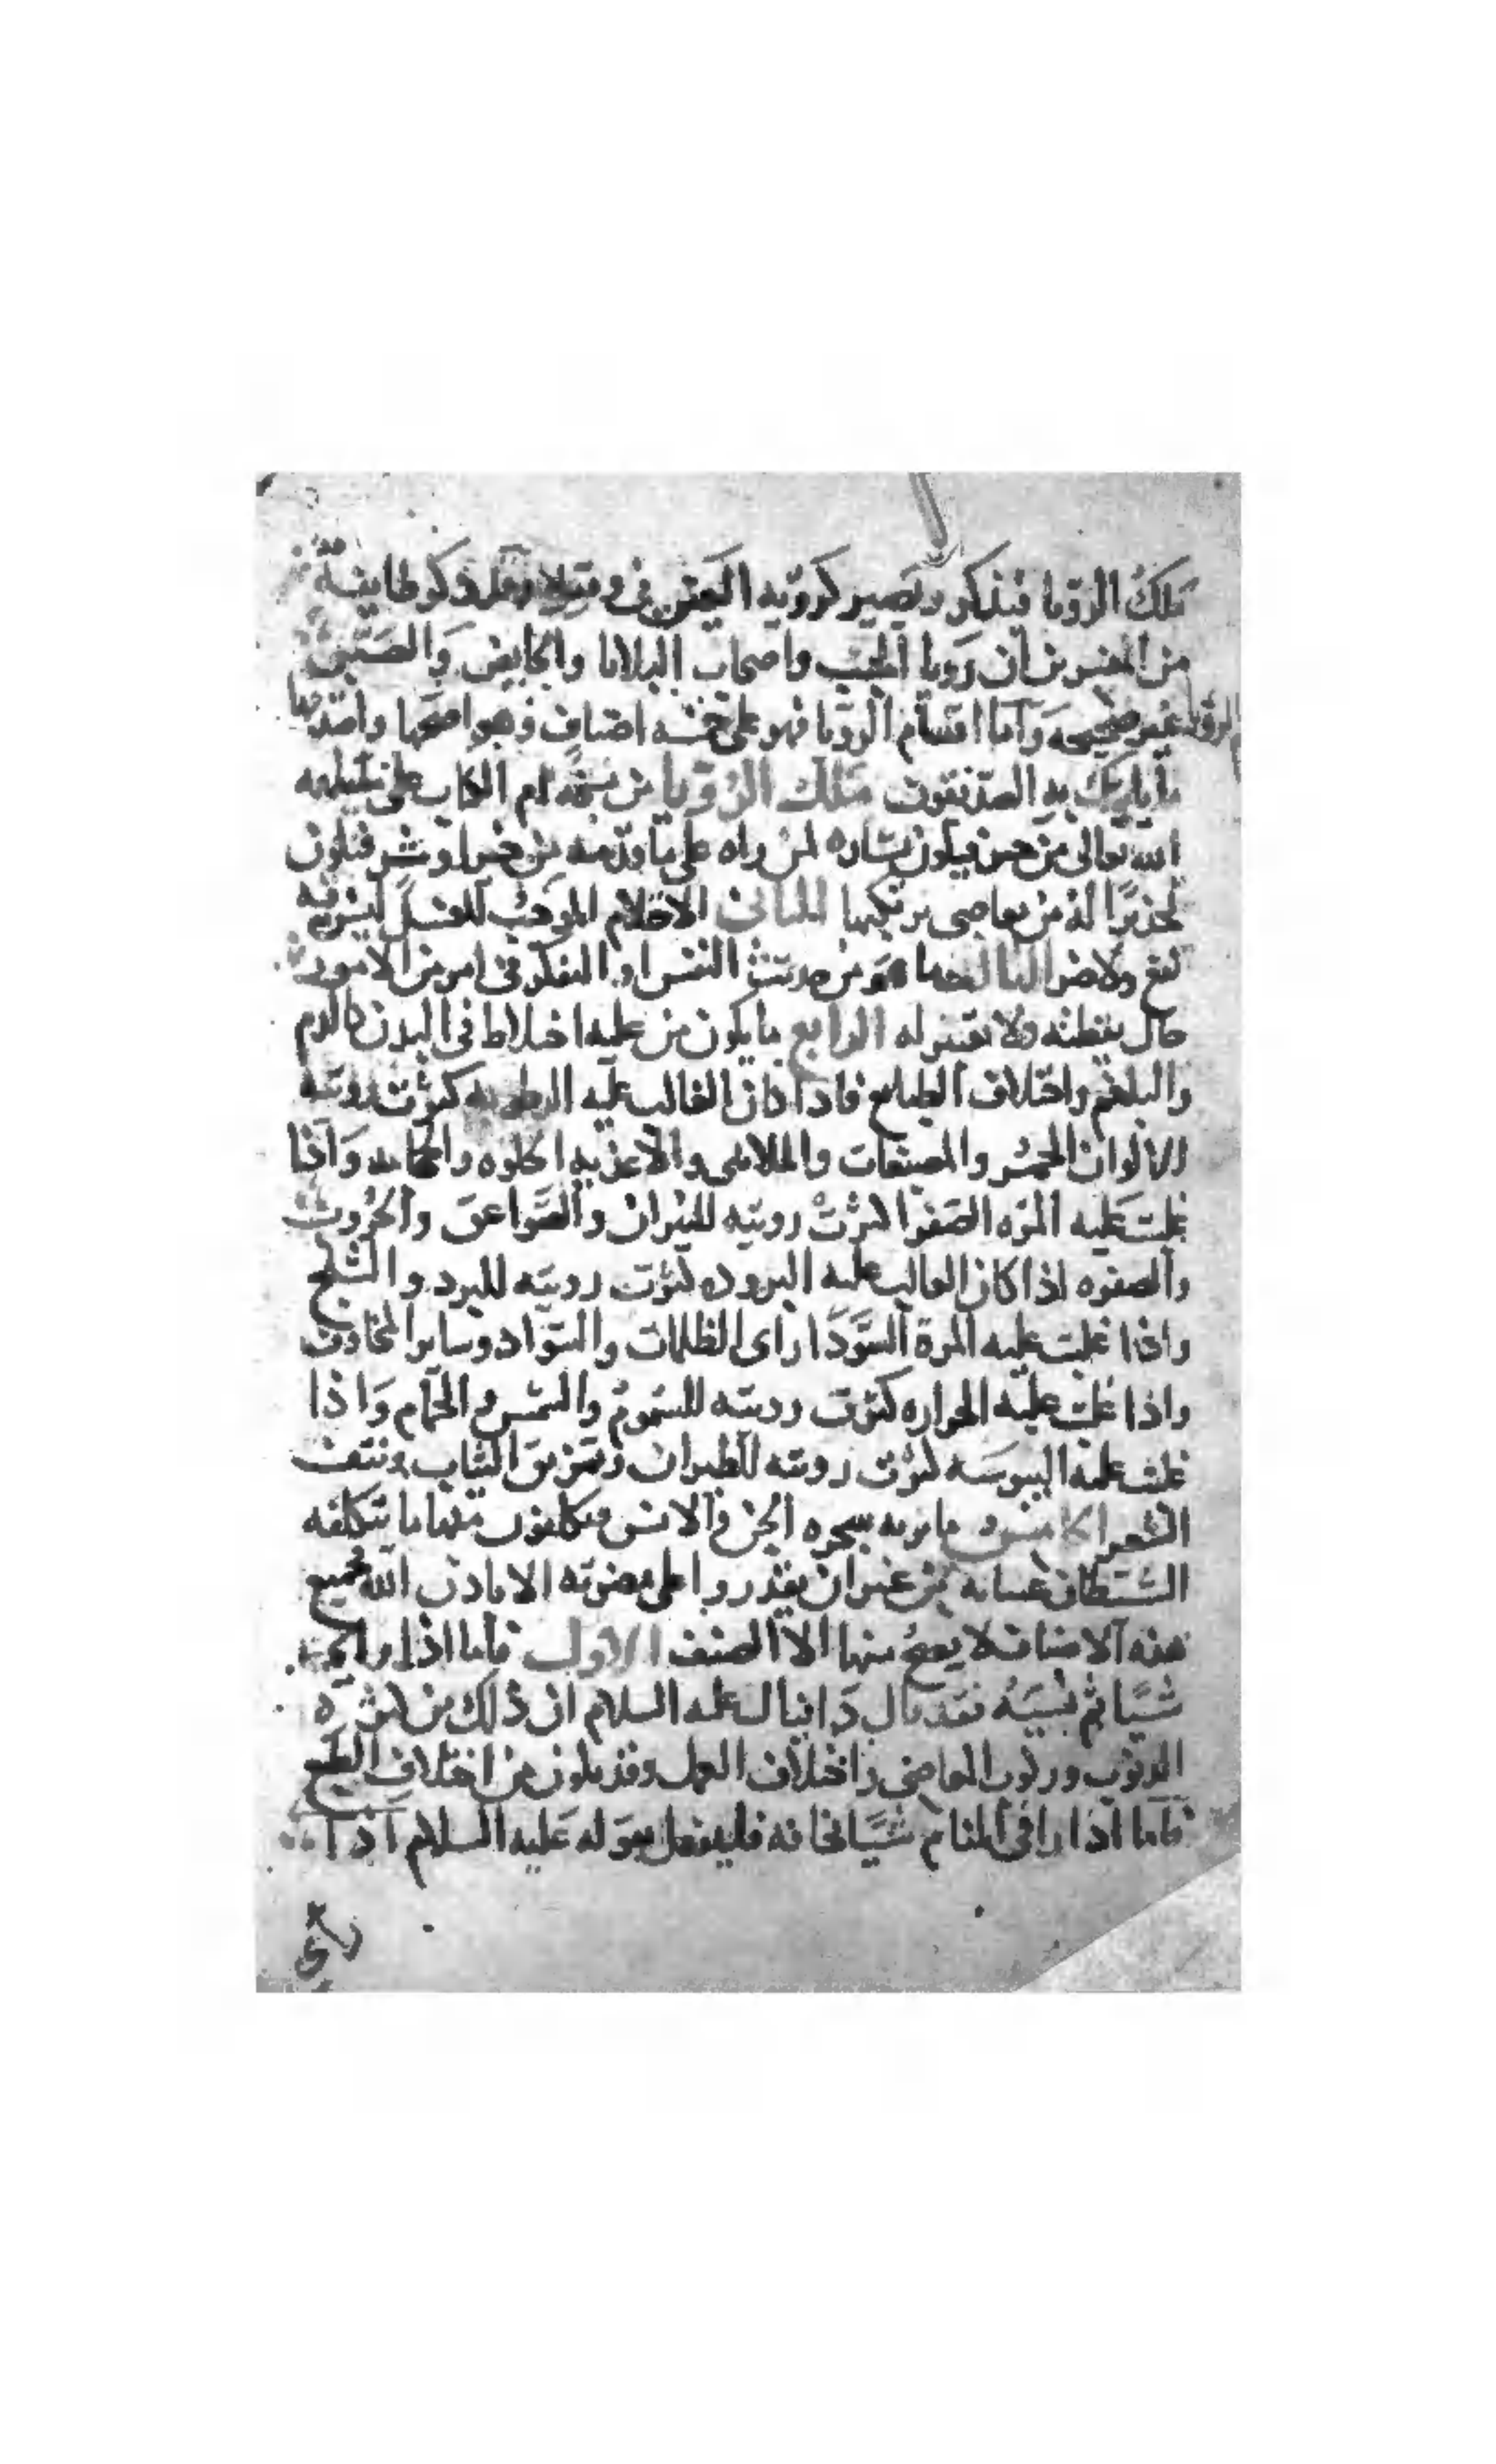 ملك الرؤيا فيذكر ويصير كرؤيه العين في وقد ذكر طايفة
من المفسرين ان رويا الجنب واصحاب البلايا والحايض والصبي
غير صحيحه وأما اقسام الرؤيا فهو على خمسه اصناف وهو اصحها واصدقها
ما ياتيك به الصديقون ملك الرؤيا من نسخه ام الكتاب على
الله تعالى من حسن فيكون بشاره لمن راه على ما قدمه من خير او شر فيكون
تحذيرًا له من معاصى يرتكبها الثاني الاحلام الموجب للغسل ليس فيه
نفع ولا ضر الثالث ما هو من حديث النفس او الفكر في امر من الامور
حال يقظته ولا تفسير له الرابع ما يكون من غلبه اخلاط في البدن كالدم
والبلغم واختلاف الطبايع فاذا كان الغالب عليه الرطوبه كثرت رويته
الالوان الحمر والمصبغات والملاهي والاغذيه الحلوه والحجامه وَاذا
غلبت عَليه المرّه الصفرا كثرت رويته للنيران والصّواعق والحروب
والصفره اذا كان الغالب عليه البروده كثرت رويته للبرد والثلج
واذا غلبت عليه المرة السَّودَا راى الظلمات والسَّوَاد وسايرا المخاوف
واذا غلبت عليه الحراره كثرت رويته للسّموم والشمس والحمّام وَاذا
غلبت عليه اليبوسَه كثرت رويته للطيران وتمزيق الثياب ونتف
الشعر الخامس ما يريه سحره الجن والانس ويتكلفون منها ما يتكلفه
الشيطان من غير ان يقدروا على مضرته الا باذن الله فجميع
هذه الاصناف لا يصح منها الا الصنف الاول فاما اذا راى
شيًا ثم نسيَهُ فقد قال دَانيال عليه السلام ان ذلك من كثره
الذنوب وركوب المعاصي واختلاف العمل وقد يكون من اختلاف الطبع
فاما اذا راى في المنام شيًا يخافه فليفعل بقوله عَليه السلام اذا